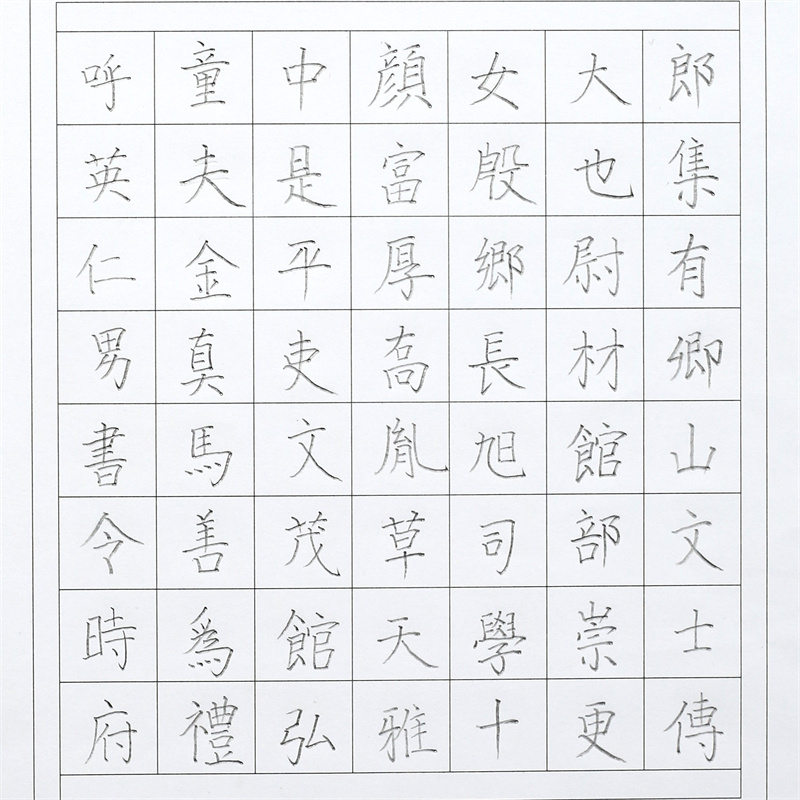 郎集有卿山文士傳
大也尉材館部崇更
女殷鄉長旭司學十
顏富厚喬胤草天雅
中是平吏文茂館弘
童夫金真馬善爲禮
呼英仁男書令時府